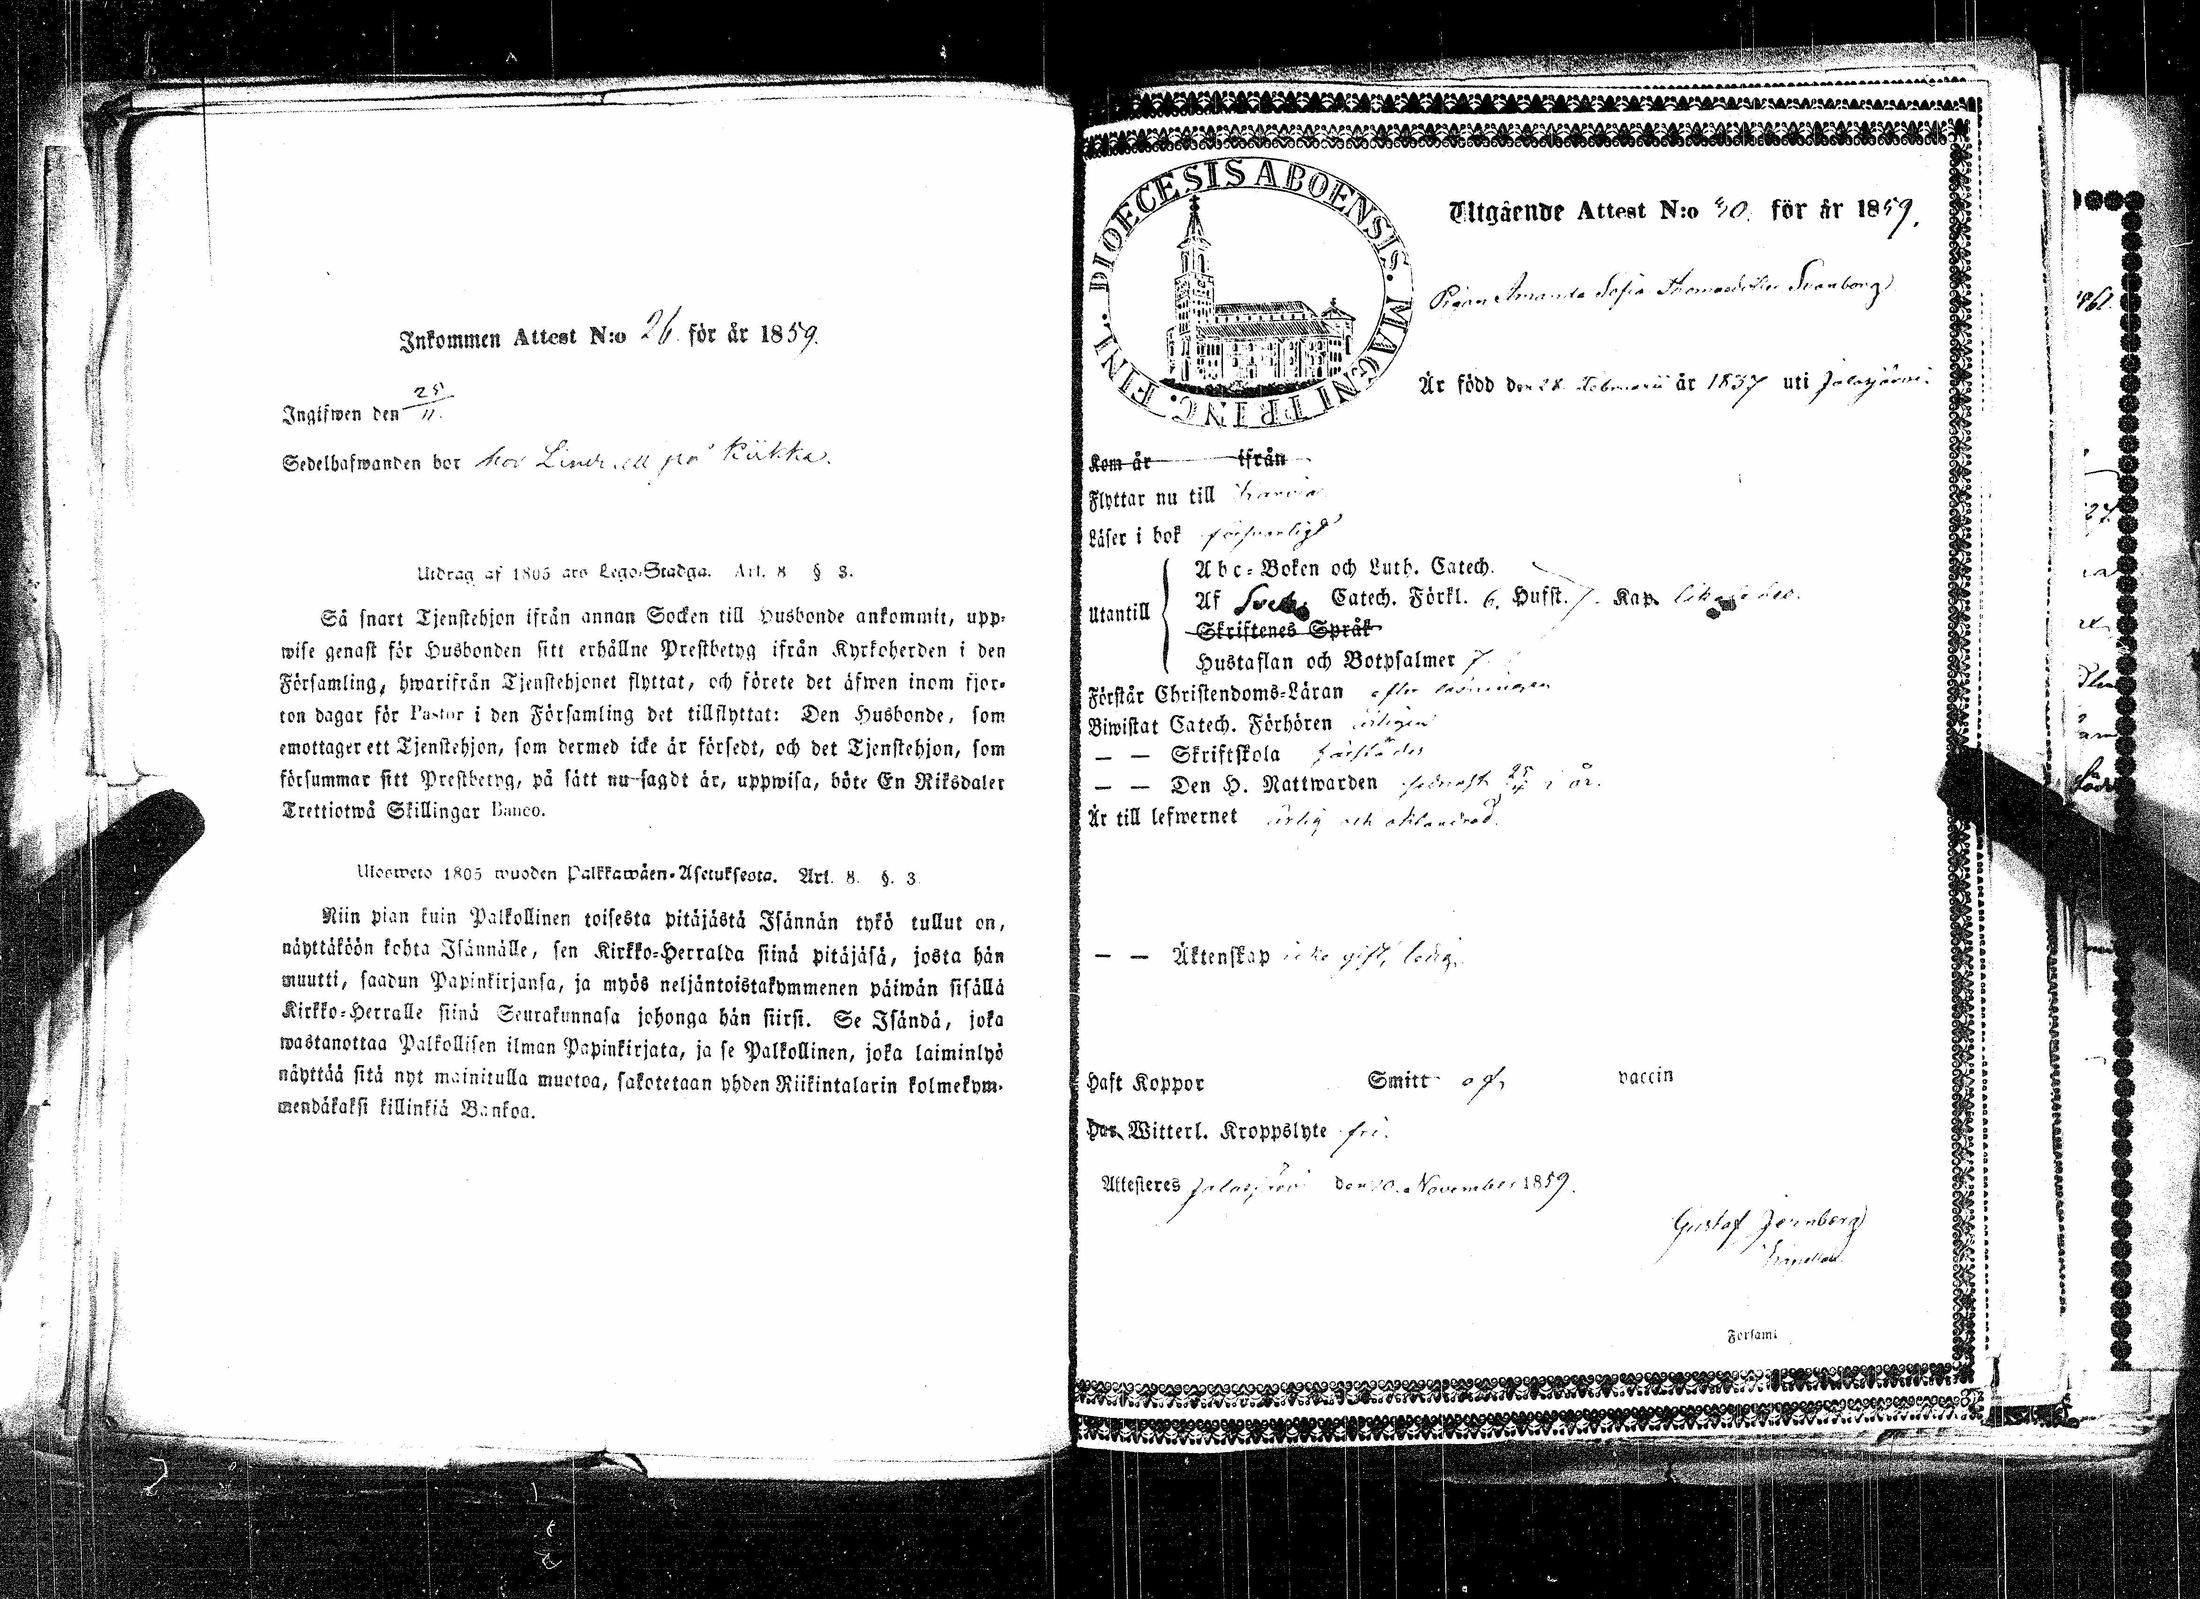 Inkommen Attest N:o 26 för år 1859.
Ingifwen den 25/11.
Sedelhafwanden bor hos på Kiikka.
Utdrag af 1805 års Lego-Stadga. Art. 8 § 3.
Så snart Tjenstehjon ifrån annan Socken till Husbonde ankommit, upp-
wise genast för Husbonden sitt erhållne Prestbetyg ifrån Kyrkoherden i den
Församling, hwarifrån Tjenstehjonet flyttat, och förete det äfwen inom fjor-
ton dagar för Pastor i den Församling det tillflyttat: Den Husbonde, som
emottager ett Tjenstehjon, som dermed icke är försedt, och det Tjenstehjon, som
försummar sitt Prestbetyg, på sätt nu sagdt är, uppwisa, böte En Riksdaler
Trettiotwå Skillingar Banco.
Ulosweto 1805 wuoden Palkkawäen-Asetuksesta. Art. 8. §. 3.
Niin pian kuin Palkollinen toisesta pitäjästä Isännän tykö tullut on,
näyttäköön kohta Isännälle, sen Kirkko-Herralda siinä pitäjäsä, josta hän
muutti, saadun Papinkirjansa, ja myös neljäntoistakymmenen päiwän sisällä
Kirkko-Herralle siinä Seurakunnasa johonga hän siirsi. Se Isändä, joka
wastanottaa Palkollisen ilman Papinkirjata, ja se Palkollinen, joka laiminlyö
näyttää sitä nyt mainitulla muotoa, sakotetaan yhden Riikintalarin kolmekym-
mendäkaksi killinkiä Bankoa.
DIOECESIS ABOENSIS. MAGNI PRINC. FINL.
Utgående Attest N:o 30. för år 1859.
Pigan Amanda Sofia Thomasdotter Svanborg
Är född den 28 Februarii år 1837 uti Jalasjärvi.
Kom år ifrån
Flyttar nu till Karvia
Läser i bok försvarligt
Utantill
Abc-Boken och Luth. Catech.
Af Sveb. Catech. Förkl. 6. Hufst. 7. Kap.
Skriftenes Språk
Hustaflan och Botpsalmer 7.
Förstår Christendoms-Läran efter läsningen
Biwistat Catech. Förhören årligen
— — Skriftskola
— — Den H. Nattwarden sednast 25/ i år.
Är till lefwernet ärlig och oklandrad.
— — Äktenskap icke gift, ledig.
Haft Koppor Smitt- of, vaccin
Har Witterl. Kroppslyte fri.
Attesteres Jalasjärvi den 20. November 1859.
Gustaf Jernberg
Kapellan.
Församl